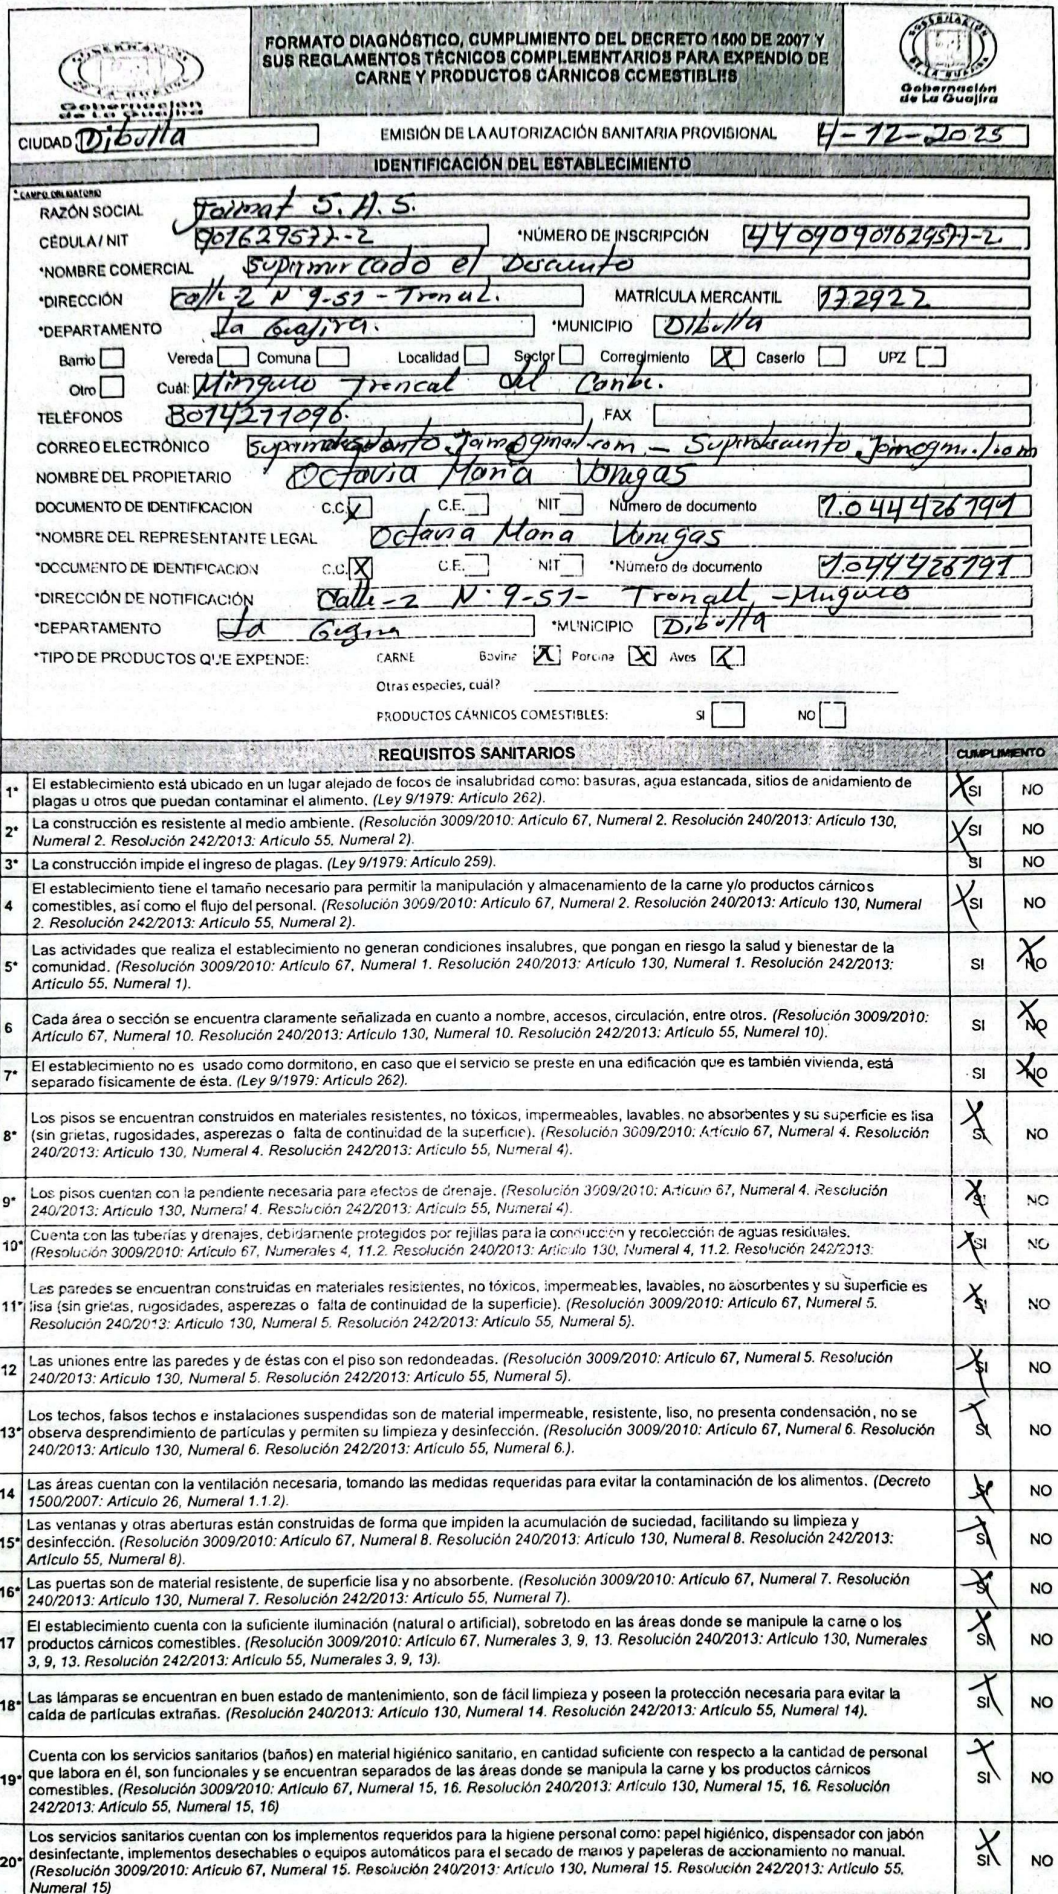 FORMATO DIAGNÓSTICO, CUMPLIMIENTO DEL DECRETO 1500 DE 2007 Y
SUS REGLAMENTOS TÉCNICOS COMPLEMENTARIOS PARA EXPENDIO DE
CARNE Y PRODUCTOS CÁRNICOS COMESTIBLES
Gobernación
de La Guajira
Gobernación
de La Guajira
CIUDAD Dibulla EMISIÓN DE LA AUTORIZACIÓN SANITARIA PROVISIONAL 4-12-2025
IDENTIFICACIÓN DEL ESTABLECIMIENTO
* CAMPO OBLIGATORIO
RAZÓN SOCIAL S.A.S.
CÉDULA / NIT 901629577-2 *NÚMERO DE INSCRIPCIÓN 44090901629577-2
*NOMBRE COMERCIAL Supermercado el Descuento
*DIRECCIÓN Calle-2 N° 9-51 - Troncal. MATRÍCULA MERCANTIL 172922
*DEPARTAMENTO La Guajira. *MUNICIPIO Dibulla
Barrio Vereda Comuna Localidad Sector Corregimiento X Caserío UPZ
Otro Cuál: Mingueo Troncal del Caribe.
TELÉFONOS 3014211096. FAX
CORREO ELECTRÓNICO
NOMBRE DEL PROPIETARIO Octavia Maria Vanegas
DOCUMENTO DE IDENTIFICACION C.C. X C.E. NIT Número de documento 1.044426191
*NOMBRE DEL REPRESENTANTE LEGAL Octavia Maria Vanegas
*DOCUMENTO DE IDENTIFICACION C.C. X C.E. NIT *Número de documento 1.044426191
*DIRECCIÓN DE NOTIFICACIÓN Calle-2 N° 9-51- Troncal - Mingueo
*DEPARTAMENTO La Guajira *MUNICIPIO Dibulla
*TIPO DE PRODUCTOS QUE EXPENDE: CARNE Bovina X Porcina X Aves X
Otras especies, cuál?
PRODUCTOS CÁRNICOS COMESTIBLES: SI NO
REQUISITOS SANITARIOS CUMPLIMIENTO
1* El establecimiento está ubicado en un lugar alejado de focos de insalubridad como: basuras, agua estancada, sitios de anidamiento de
plagas u otros que puedan contaminar el alimento. (Ley 9/1979: Articulo 262). X SI NO
2* La construcción es resistente al medio ambiente. (Resolución 3009/2010: Articulo 67, Numeral 2. Resolución 240/2013: Articulo 130,
Numeral 2. Resolución 242/2013: Artículo 55, Numeral 2). X SI NO
3* La construcción impide el ingreso de plagas. (Ley 9/1979: Artículo 259). SI NO
4 El establecimiento tiene el tamaño necesario para permitir la manipulación y almacenamiento de la carne y/o productos cárnicos
comestibles, así como el flujo del personal. (Resolución 3009/2010: Articulo 67, Numeral 2. Resolución 240/2013: Artículo 130, Numeral
2. Resolución 242/2013: Artículo 55, Numeral 2). X SI NO
5* Las actividades que realiza el establecimiento no generan condiciones insalubres, que pongan en riesgo la salud y bienestar de la
comunidad. (Resolución 3009/2010: Artículo 67, Numeral 1. Resolución 240/2013: Artículo 130, Numeral 1. Resolución 242/2013:
Articulo 55, Numeral 1). SI X NO
6 Cada área o sección se encuentra claramente señalizada en cuanto a nombre, accesos, circulación, entre otros. (Resolución 3009/2010:
Artículo 67, Numeral 10. Resolución 240/2013: Artículo 130, Numeral 10. Resolución 242/2013: Artículo 55, Numeral 10). SI X NO
7* El establecimiento no es usado como dormitorio, en caso que el servicio se preste en una edificación que es también vivienda, está
separado fisicamente de ésta. (Ley 9/1979: Articulo 262). SI X NO
8* Los pisos se encuentran construidos en materiales resistentes, no tóxicos, impermeables, lavables, no absorbentes y su superficie es lisa
(sin grietas, rugosidades, asperezas o falta de continuidad de la superficie). (Resolución 3009/2010: Artículo 67, Numeral 4. Resolución
240/2013: Artículo 130, Numeral 4. Resolución 242/2013: Artículo 55, Numeral 4). X SI NO
9* Los pisos cuentan con la pendiente necesaria para efectos de drenaje. (Resolución 3009/2010: Artículo 67, Numeral 4. Resolución
240/2013: Artículo 130, Numeral 4. Resolución 242/2013: Artículo 55, Numeral 4). X SI NO
10* Cuenta con las tuberías y drenajes, debidamente protegidos por rejillas para la conducción y recolección de aguas residuales.
(Resolución 3009/2010: Artículo 67, Numerales 4, 11.2. Resolución 240/2013: Artículo 130, Numeral 4, 11.2. Resolución 242/2013: X SI NO
11* Las paredes se encuentran construidas en materiales resistentes, no tóxicos, impermeables, lavables, no absorbentes y su superficie es
lisa (sin grietas, rugosidades, asperezas o falta de continuidad de la superficie). (Resolución 3009/2010: Artículo 67, Numeral 5.
Resolución 240/2013: Artículo 130, Numeral 5. Resolución 242/2013: Artículo 55, Numeral 5). X SI NO
12 Las uniones entre las paredes y de éstas con el piso son redondeadas. (Resolución 3009/2010: Artículo 67, Numeral 5. Resolución
240/2013: Artículo 130, Numeral 5. Resolución 242/2013: Artículo 55, Numeral 5). X SI NO
13* Los techos, falsos techos e instalaciones suspendidas son de material impermeable, resistente, liso, no presenta condensación, no se
observa desprendimiento de partículas y permiten su limpieza y desinfección. (Resolución 3009/2010: Artículo 67, Numeral 6. Resolución
240/2013: Artículo 130, Numeral 6. Resolución 242/2013: Artículo 55, Numeral 6.). X SI NO
14 Las áreas cuentan con la ventilación necesaria, tomando las medidas requeridas para evitar la contaminación de los alimentos. (Decreto
1500/2007: Artículo 26, Numeral 1.1.2). X SI NO
15* Las ventanas y otras aberturas están construidas de forma que impiden la acumulación de suciedad, facilitando su limpieza y
desinfección. (Resolución 3009/2010: Artículo 67, Numeral 8. Resolución 240/2013: Artículo 130, Numeral 8. Resolución 242/2013:
Artículo 55, Numeral 8). X SI NO
16* Las puertas son de material resistente, de superficie lisa y no absorbente. (Resolución 3009/2010: Artículo 67, Numeral 7. Resolución
240/2013: Artículo 130, Numeral 7. Resolución 242/2013: Artículo 55, Numeral 7). X SI NO
17 El establecimiento cuenta con la suficiente iluminación (natural o artificial), sobretodo en las áreas donde se manipule la carne o los
productos cárnicos comestibles. (Resolución 3009/2010: Artículo 67, Numerales 3, 9, 13. Resolución 240/2013: Artículo 130, Numerales
3, 9, 13. Resolución 242/2013: Artículo 55, Numerales 3, 9, 13). X SI NO
18* Las lámparas se encuentran en buen estado de mantenimiento, son de fácil limpieza y poseen la protección necesaria para evitar la
caída de partículas extrañas. (Resolución 240/2013: Artículo 130, Numeral 14. Resolución 242/2013: Artículo 55, Numeral 14). X SI NO
19* Cuenta con los servicios sanitarios (baños) en material higiénico sanitario, en cantidad suficiente con respecto a la cantidad de personal
que labora en él, son funcionales y se encuentran separados de las áreas donde se manipula la carne y los productos cárnicos
comestibles. (Resolución 3009/2010: Artículo 67, Numeral 15, 16. Resolución 240/2013: Artículo 130, Numeral 15, 16. Resolución
242/2013: Artículo 55, Numeral 15, 16) X SI NO
20* Los servicios sanitarios cuentan con los implementos requeridos para la higiene personal como: papel higiénico, dispensador con jabón
desinfectante, implementos desechables o equipos automáticos para el secado de manos y papeleras de accionamiento no manual.
(Resolución 3009/2010: Artículo 67, Numeral 15. Resolución 240/2013: Artículo 130, Numeral 15. Resolución 242/2013: Artículo 55,
Numeral 15) X SI NO